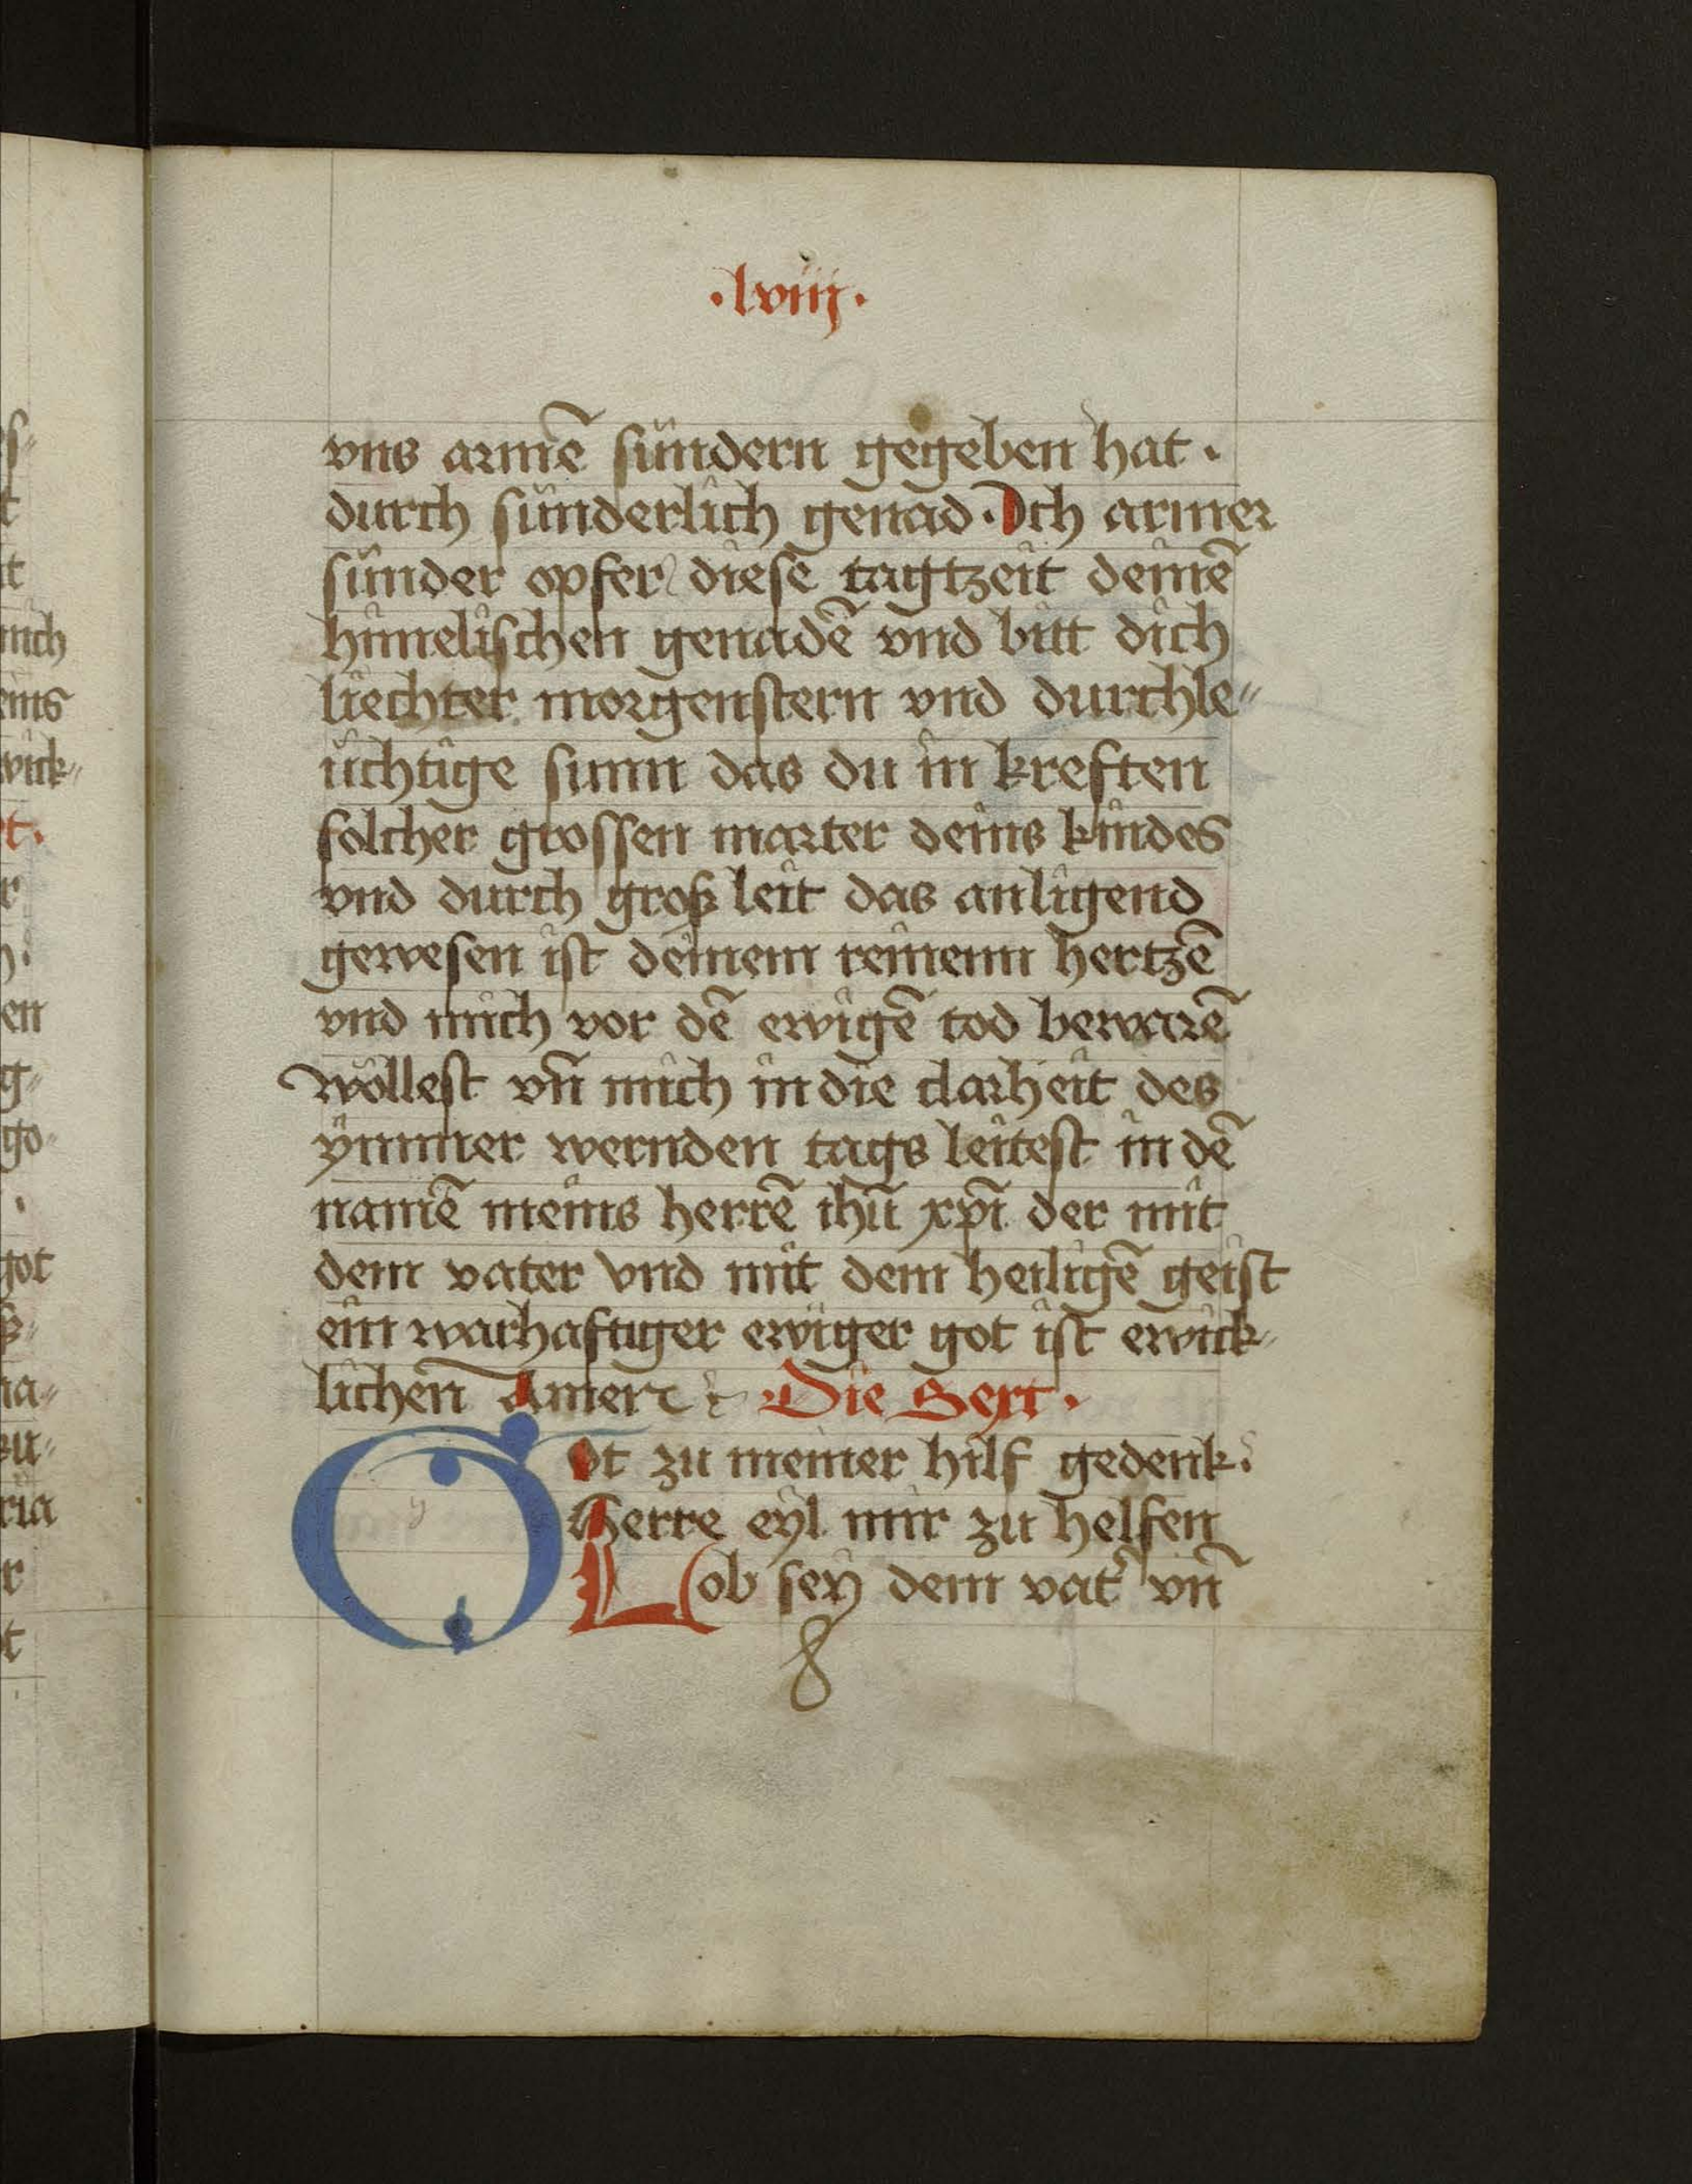 ·lviij·
vns armē sündern gegeben hat ·
durch sünderlich genad · Ich armer
sünder opfer diese tagtzeit deinē
himelischen genadē vnd bitt dich
liechter morgenstern vnd durchle-
üchtige sunn das du in kreften
solcher grossen marter deins kindes
vnd durch groß leit das anligend
gewesen ist deinem reinenn hertzē
vnd mich vor dē ewigē tod bewarē
wöllest vn̄ mich in die clarheit des
ÿmmer wernden tags leitest in dē
namē meins herrē ihū xp̄i der mit
dem vater vnd mit dem heiligē geist
ein warhaftiger ewiger got ist ewick-
lichen̄ Amen Die Sext ·
Got zu meiner hilf gedenk ·
Herre eyl mir zu helfen
Lob seÿ dem vat̄ vn̄